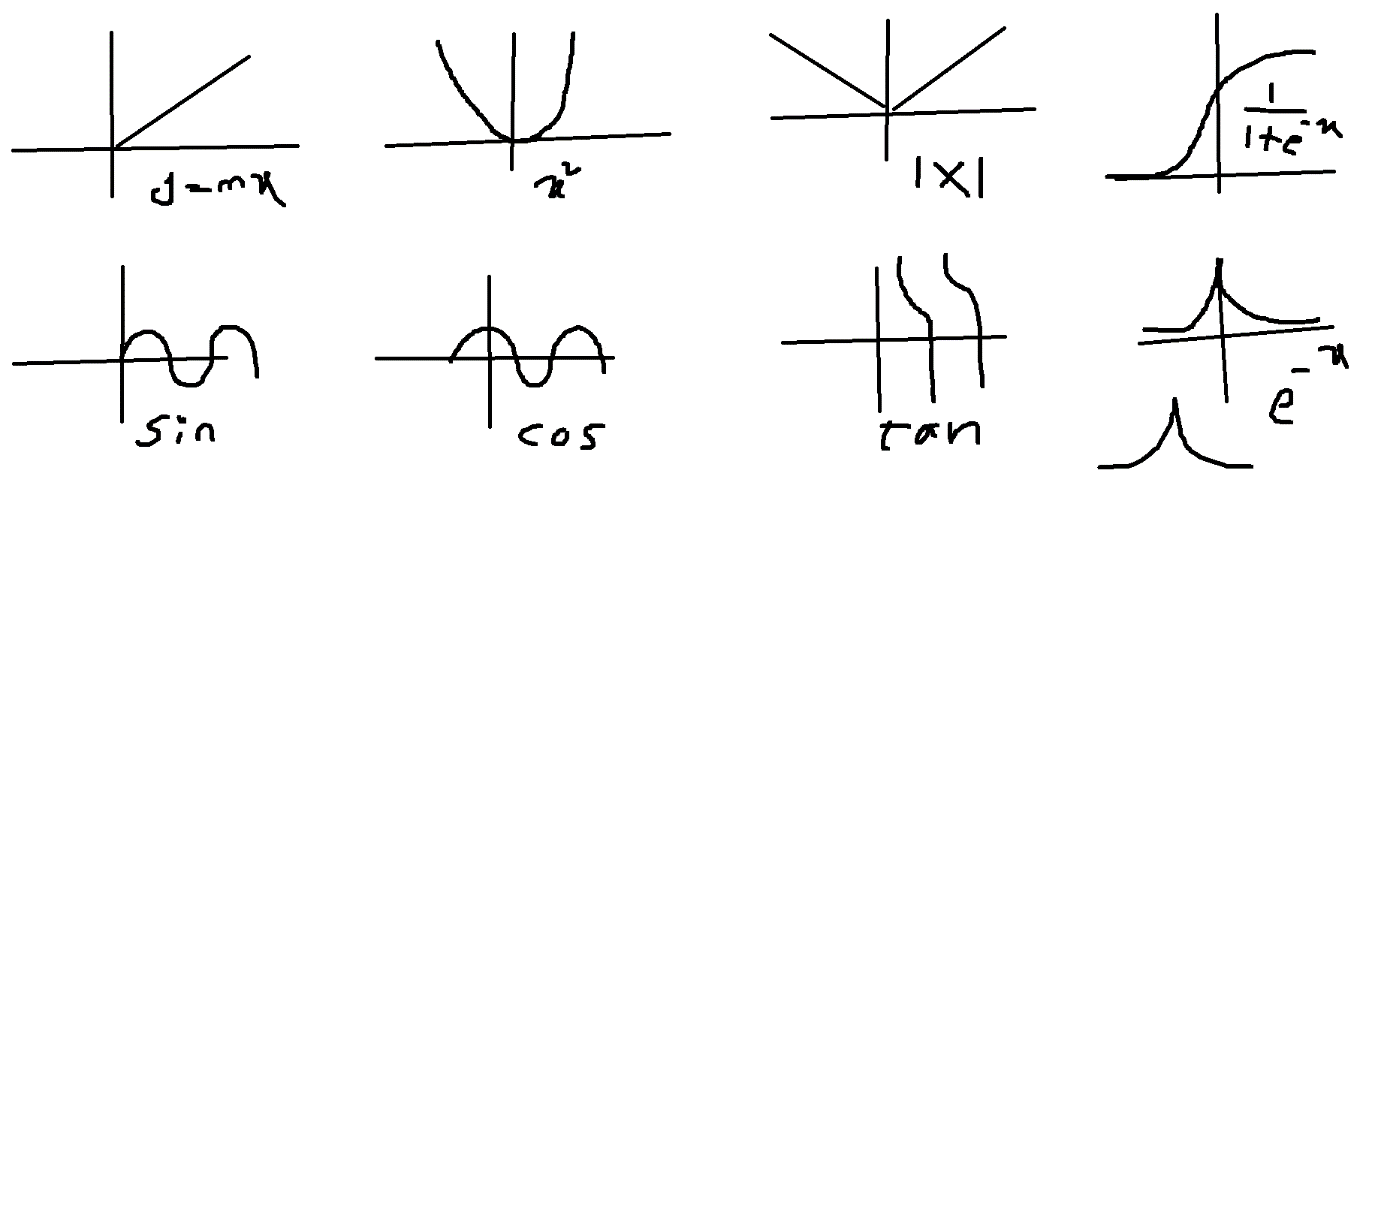 y = mx
x²
|x|
1
1+e^-x
sin
cos
tan
e^-x